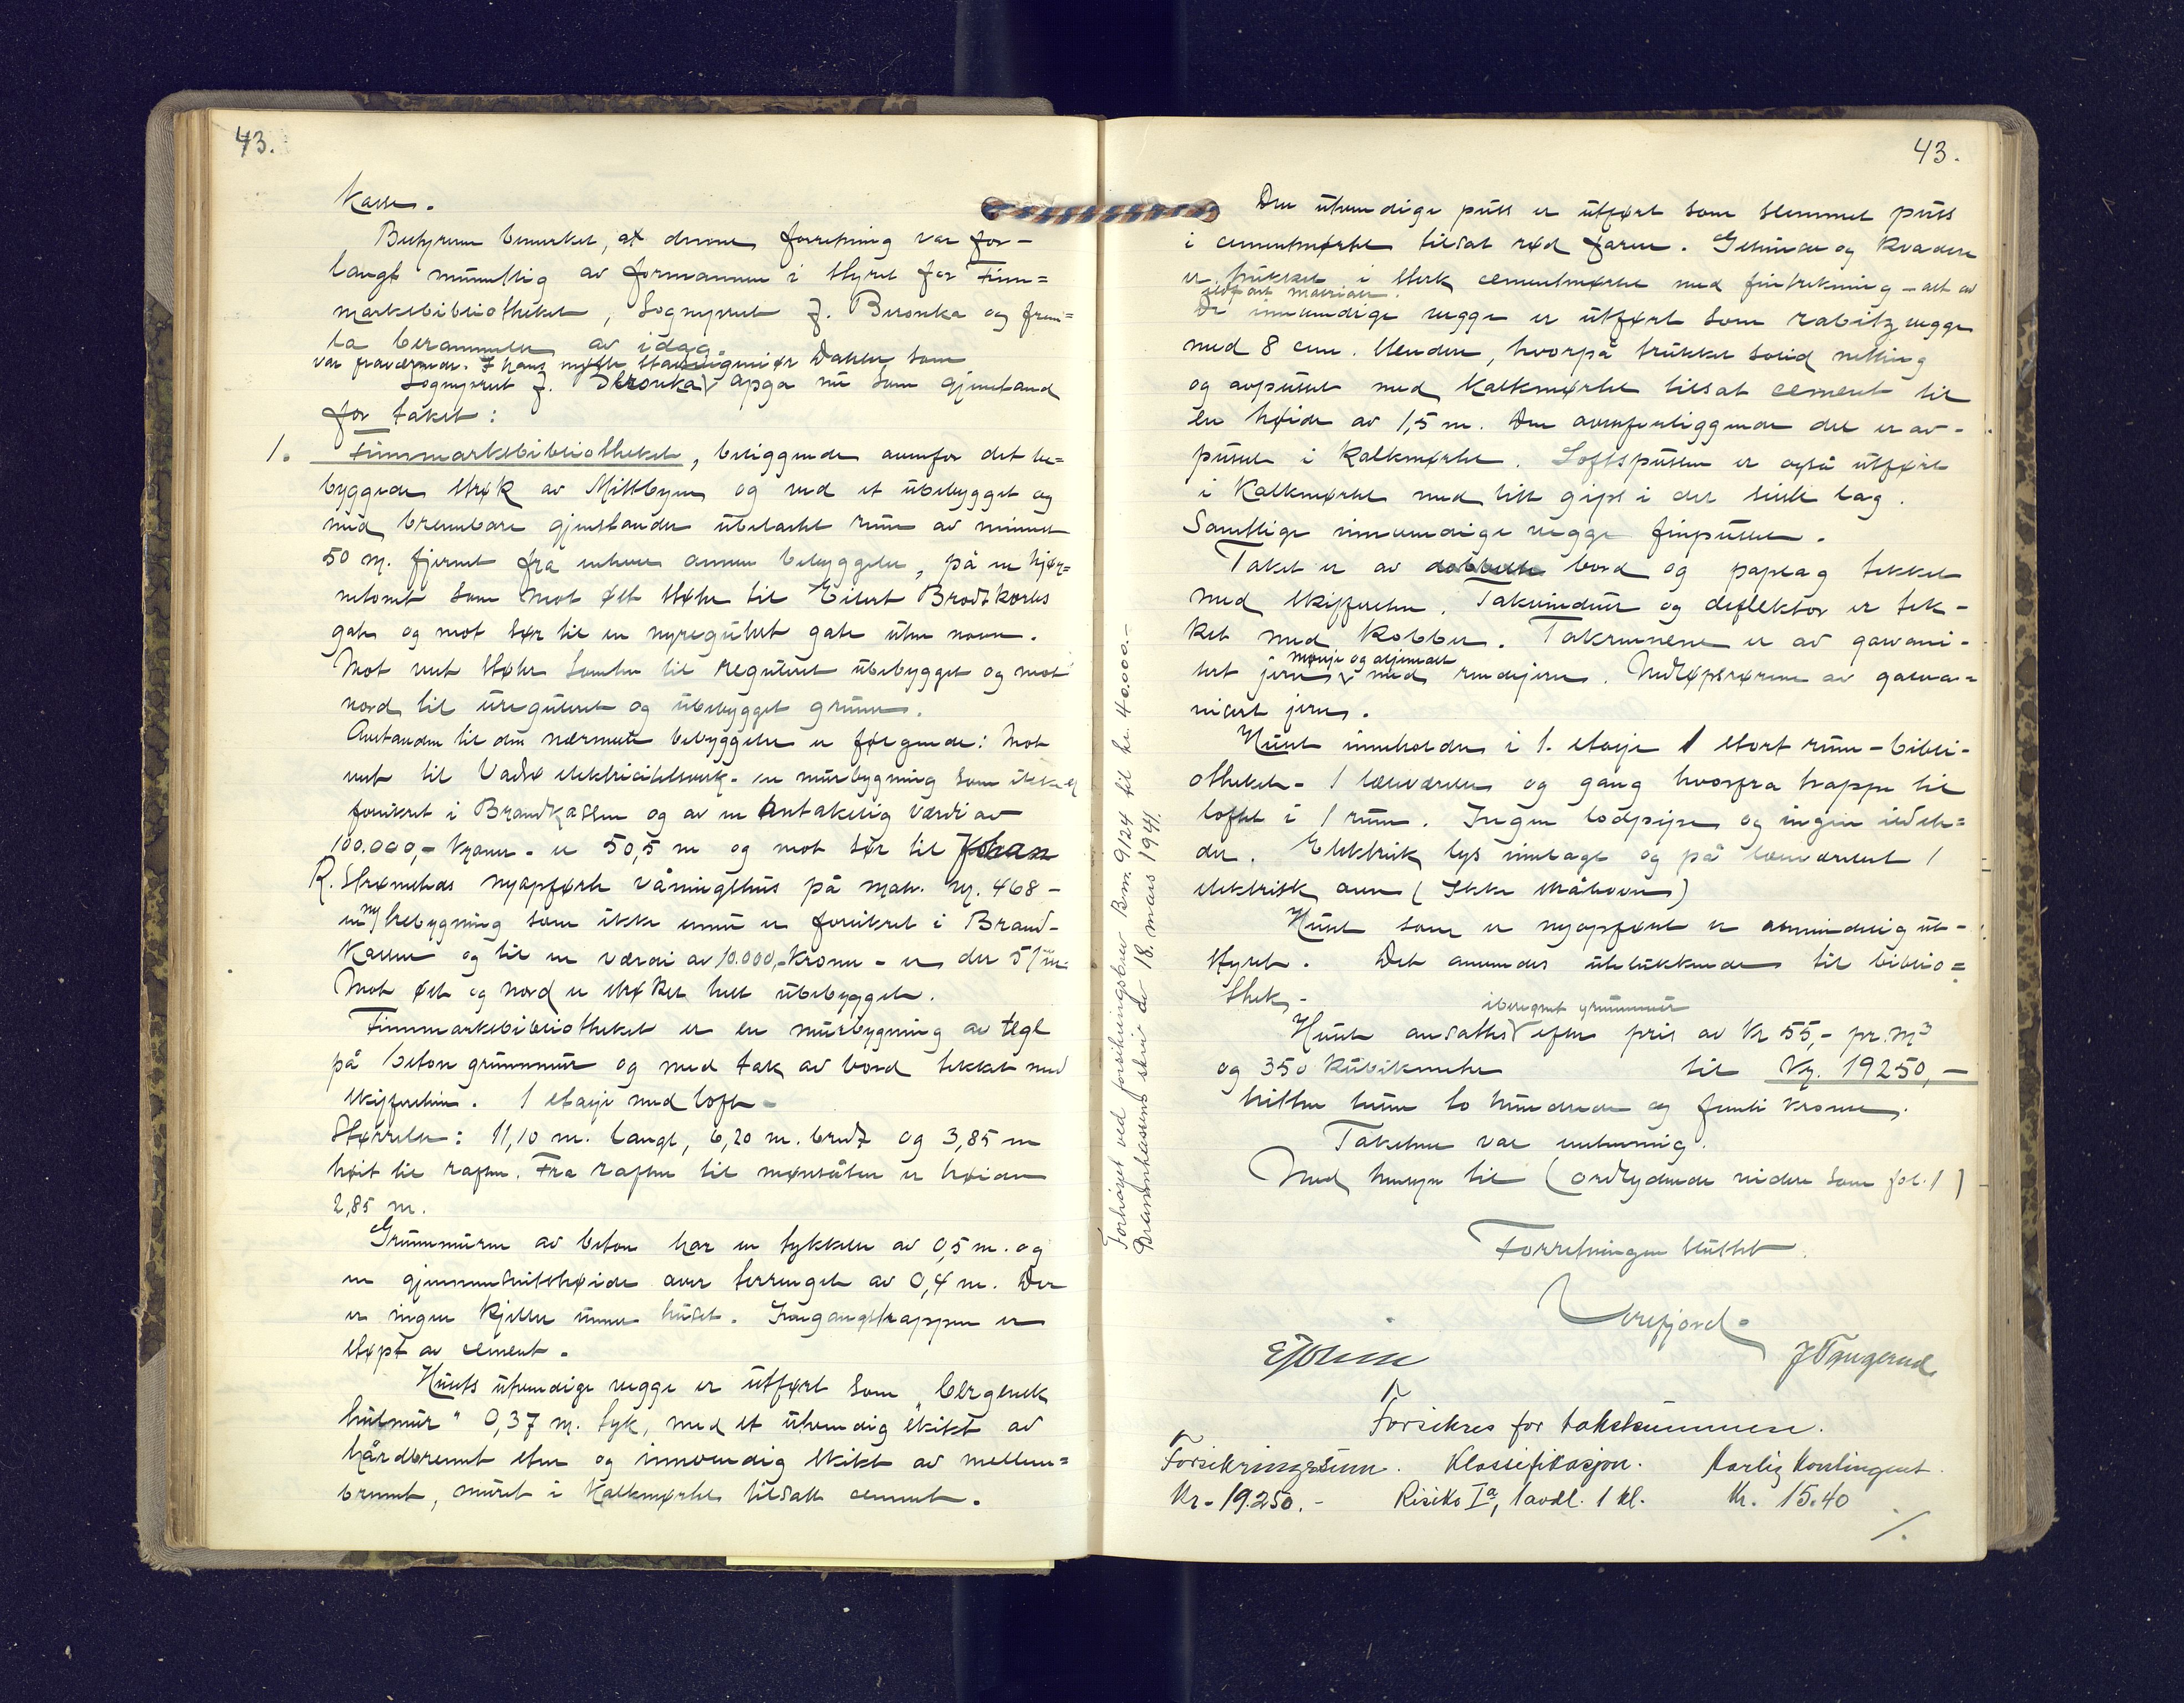 43.
kassen.
Bestyreren bemerket, at denne forretning var for-
langt mundtlig av formannen i styret for Finn=
marksbibliotheket, Sogneprest J. Beronka og frem=
la berammelse av idag.
var fraværende. I hans møtte stadsingeniør Dahler som
Sogneprest J. Beronka opga nu som gjenstand
for takst:
1. Finnmarksbibliotheket, beliggende ovenfor det be=
byggede strøk av Midtbyen og ved et ubebygget og
med brennbare gjenstander ubelastet rum av minst
50 m. fjernet fra enhver annen bebyggelse, på en hjør=
netomt som mot øst støter til Eilert Brodtkorbs
gate og mot sør til en nyregulert gate uten navn.
Mot vest støter tomten til regulert ubebygget og mot
nord til uregulert og ubebygget grunn.
Avstanden til den nærmeste bebyggelse er følgende: Mot
vest til Vadsø elektricitetsverk - en murbygning som ikke er
forsikret i Brandkassen og av en antakelig værdi av
100.000,- kroner - er 50,5 m og mot sør til Johan
R. Strømstads nyopførte våningshus på matr. nr. 468 -
en ny trebygning som ikke ennu er forsikret i Brand-
kassen og til en værdi av 10.000,- kroner - er der 51 m.
Mot øst og nord er strøket helt ubebygget.
Finnmarksbibliotheket er en murbygning av tegl
på beton grunnmur og med tak av bord tekket med
skifersten. 1 etasje med loft -
Størrelse: 11,10 m. langt, 6,20 m. bredt og 3,85 m
høit til raften. Fra raften til mønsåsen er høiden
2,85 m.
Grunnmuren av beton har en tykkelse av 0,5 m. og
en gjennemsnitshøide over terrenget av 0,4 m. Der
er ingen kjeller under huset. Inngangstrappen er
støpt av cement.
Husets utvendige vegge er utført som "bergensk
hulmur" 0,37 m. tyk, med et utvendig skikt av
hårdbrennt sten og innvendig skikt av mellem=
brennt, muret i kalkmørtel tilsatt cement.
Forhøyet ved forsikringsbrev Bnr. 9124 til kr. 40.000.-
Brannkassens skriv av 18. mars 1941.
43.
Den utvendige puss er utført som slemmet puss
i cementmørtel tilsat rød farve. Gesimser og kvadere
er trukket i sterk cementmørtel med fintrekning - alt av
materiale.
De innvendige vegge er utført som rabitzvegge
med 8 cm. stendere, hvorpå trukket solid netting
og avpusset med kalkmørtel tilsat cement til
en høide av 1,5 m. Den ovenforliggende del er av-
pusset i kalkmørtel. Loftspussen er også utført
i kalkmørtel med litt gips i det siste lag.
Samtlige innvendige vegge finpusset.
Taket er av dobbelte bord og paplag tekket
med skifersten. Takvinduer og deflektor er tek-
ket med kobber. Takrennene er av gavani-
sert jern mønje og oljemalt med rendejern. Nedløpsrørene av galva=
nisert jern.
Huset inneholder i 1. etasje 1 stort rum - bibli-
otheket - 1 læseværelse og gang hvorfra trappe til
loftet i 1 rum. Ingen lodpipe og ingen ildste=
der. Elektrisk lys innlagt og på læseværelset 1
elektrisk ovn (Ikke stråleovn)
Huset som er nyopført er almindelig ut-
styret. Det anvendes utelukkende til biblio=
thek -
iberegnet grunnmur
Huset ansattes efter pris av kr 55,- pr. m³
og 350 kubikmeter til Kr. 19250,-
nitten tusen to hundrede og femti kroner.
Taksten var enstemmig.
Med hensyn til (ordlydende videre som fol. 1)
Forretningen sluttet.
Verefjord.
Forsikres for takstsummene.
Forsikringssum. Klassifikasjon. Aarlig kontingent.
Kr. 19.250.- Risiko Iª, 1 avdl. 1 kl. Kr. 15.40
/.